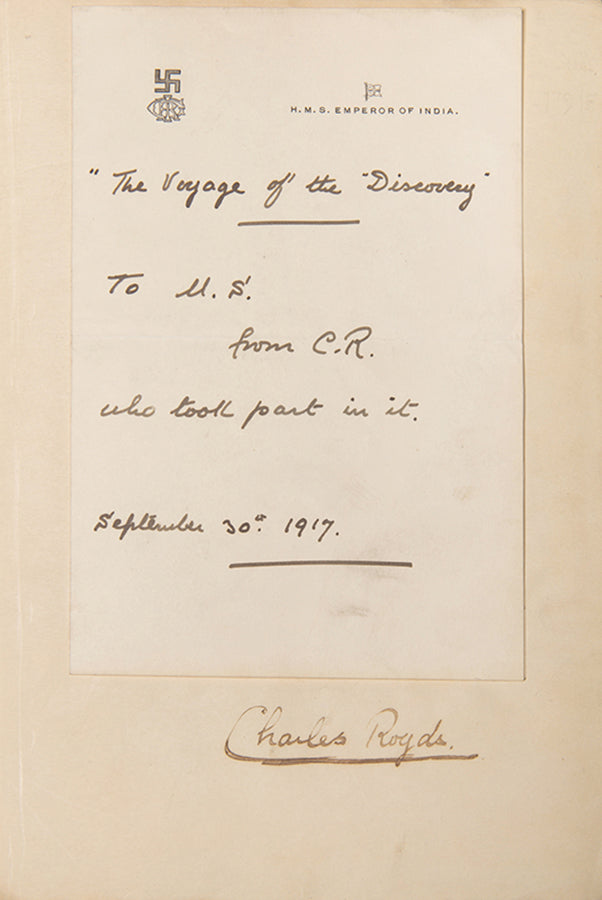 H.M.S. EMPEROR OF INDIA.
"The Voyage of the "Discovery"
To M. S.
from C.R.
who took part in it.
September 30th. 1917.
Charles Royds.